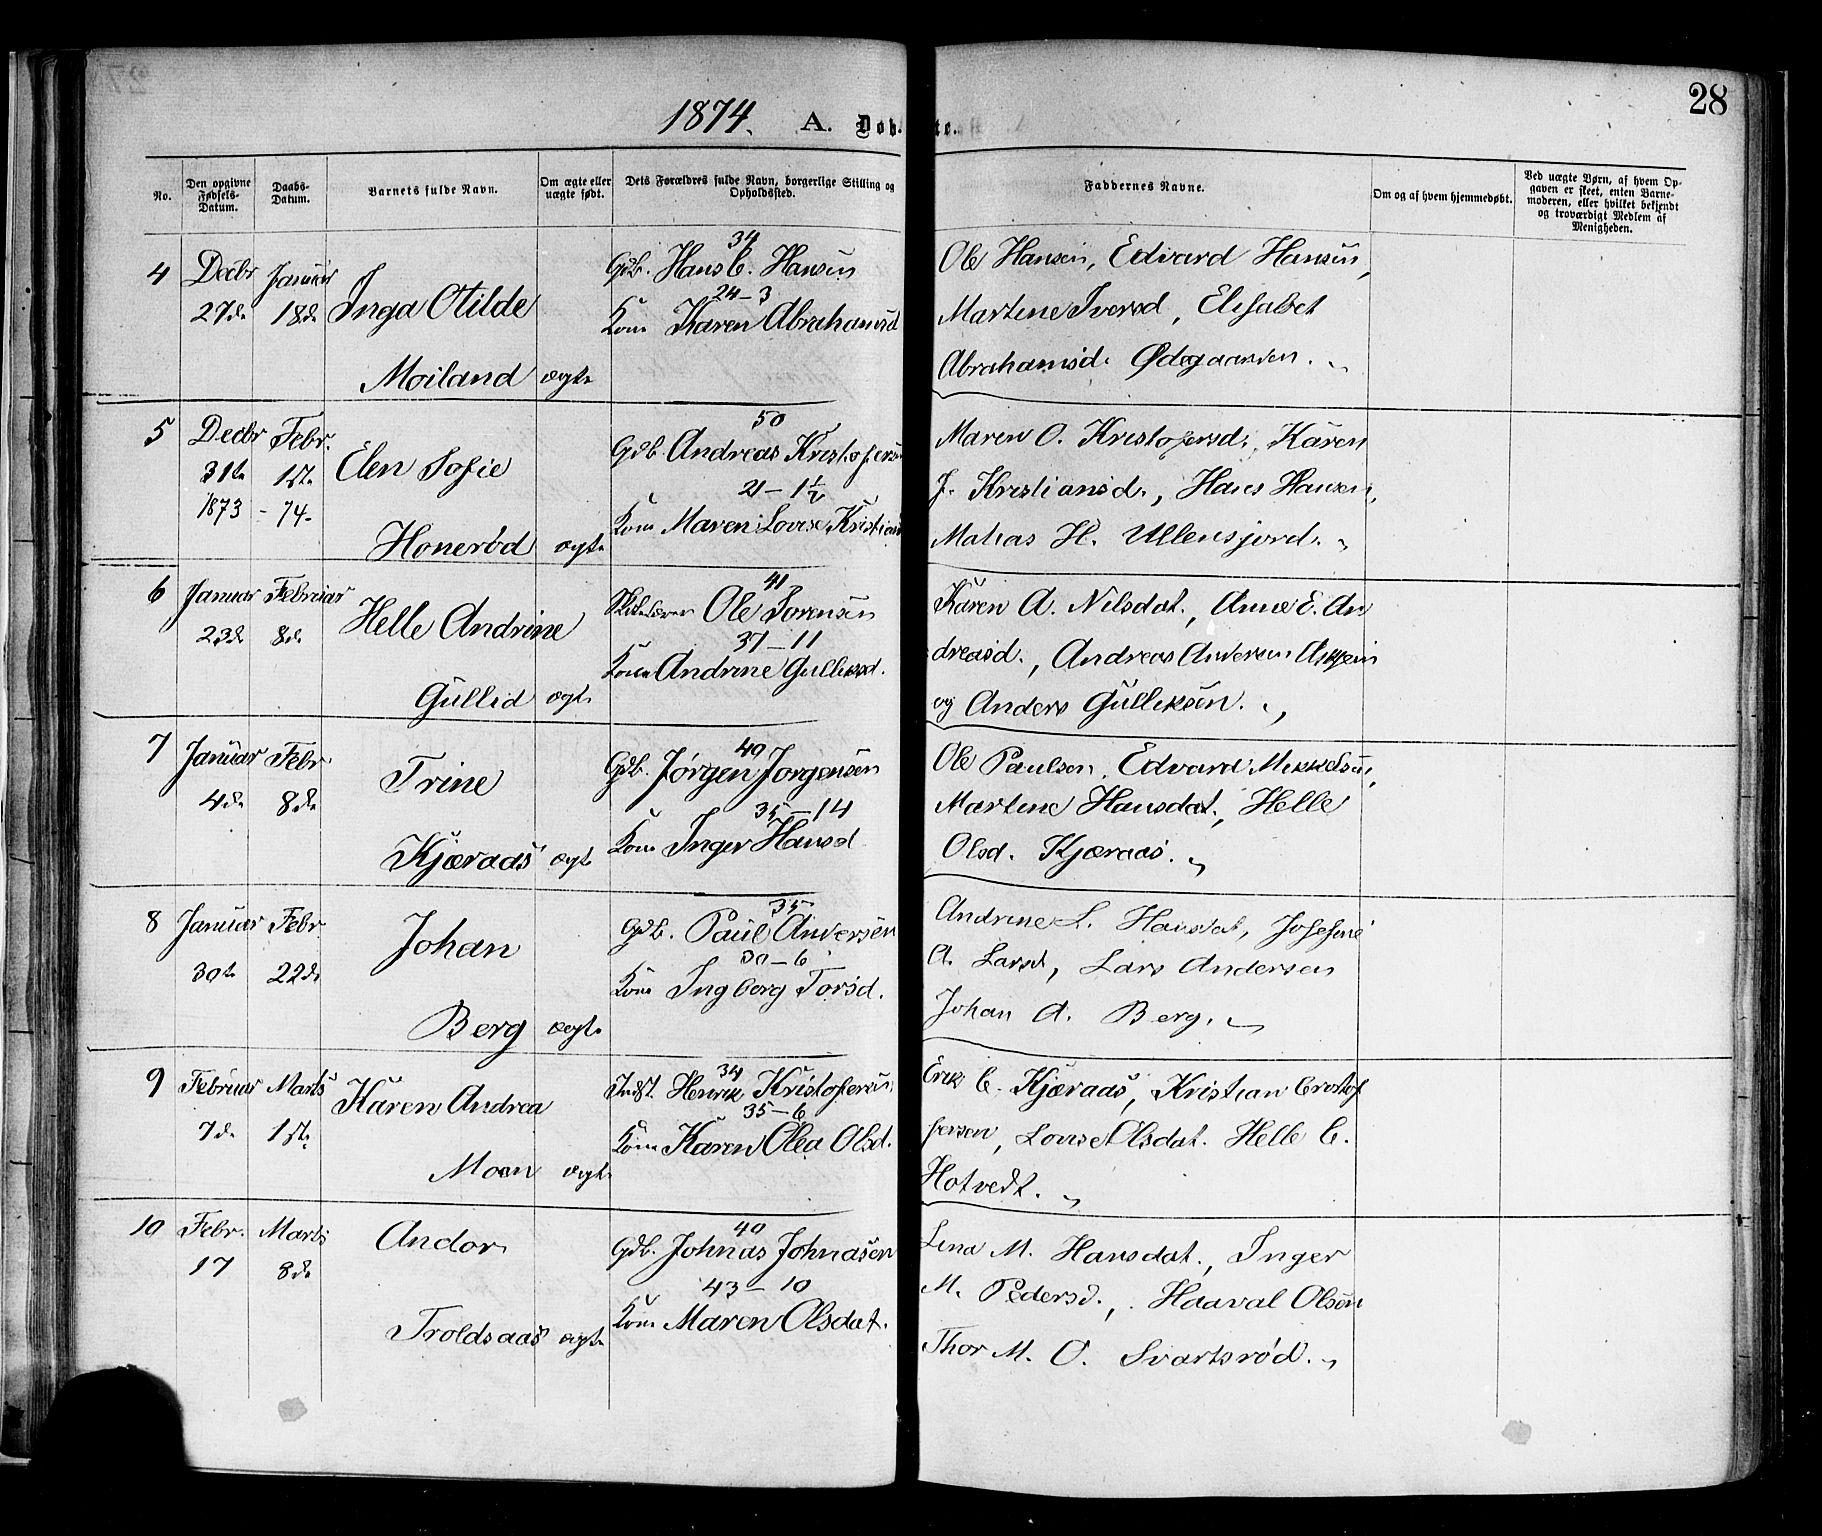 28
1874. A. Døbte.
No.
Den opgivne Fødsels-Datum.
Daabs-Datum.
Barnets fulde Navn.
Om ægte eller uægte født.
Dets Forældres fulde Navn, borgerlige Stilling og Opholdssted.
Faddernes Navne.
Om og af hvem hjemmedøbt.
Ved uægte Børn, af hvem Opgaven er skeet, enten Barnemoderen, eller hvilket bekjendt og troværdigt Medlem af Menigheden.
4 Decbr 27de
Januar 18de
Inga Otilde
Moiland ægte
34
Gdb. Hans C. Hansen
24-3
Kone Karen Abrahamsd
Ole Hansen, Edvard Hansen,
Martine Iversd, Elisabet
Abrahamsd. Ødegaarden.
5 Decbr 31te 1873
Febr. 1ste - 74.
Elen Sofie
Honerød ægte
50
Gdb. Andreas Kristofersen
21-1½
Kone Maren Lovise Kristians
Maren O. Kristofersd., Karen
J. Kristiansd., Hans Hansen,
Matias H. Ullensjord.
6 Januar 23de
Februar 8de
Helle Andrine
Gullid ægte
41
Ole Sorensen
37-11
Kone Andrine Gulliksd.
Karen A. Nilsdat., Anne E. An
dreasd., Andreas Andersen
og Anders Gulliksen.
7 Januar 4de
Febr 8de
Trine
Kjæraas ægte
49
Gdb. Jørgen Jorgensen
35-14
Kone Inger Hansd
Ole Paulsen, Edvard Mikkelsen,
Martine Hansdat., Helle
Olsd. Kjæraas.
8 Januar 30te
Febr 22de
Johan
Berg ægte
35
Gdb. Paul Andersen
30-6
Kone Ingborg Torsd.
Andrine L. Hansdat, Josefine
A. Larsd, Lars Andersen
Johan A. Berg.
9 Februar 7de
Marts 1ste
Karen Andrea
Moen ægte
34
Indst. Henrik Kristofersen
35-6
Kone Karen Olea Olsd.
Erik C. Kjæraas, Kristian Cristof
fersen, Lovise Olsdat. Helle C.
Hotvedt.
10 Febr. 17
Marts 8de
Andor
Troldsaas ægte
40
Gdb. Johnas Johnasen
43-10
Kone Maren Olsdat.
Lena M. Hansdat., Inger
M. Pedersd., Haaval Olsen
Thor M. O. Svartsrød.